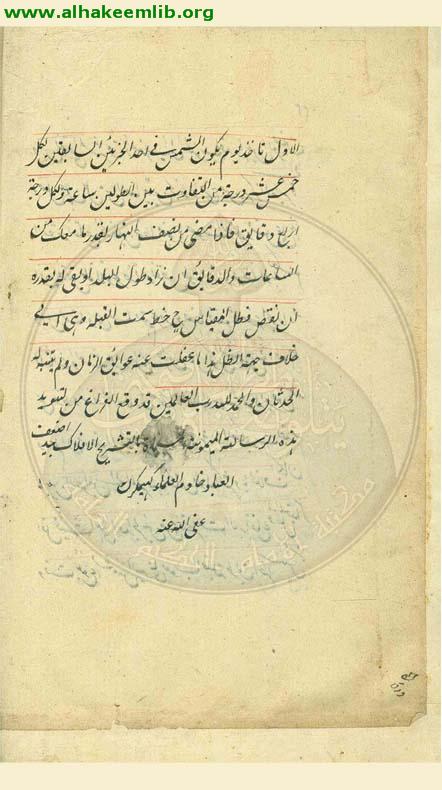 www.alhakeemlib.org
الاول تاخذ يوم يكون الشمس في احد الجزئين السابقين لكل
خمس عشر درجة من التفاوت بين الطولين ساعة ولكل درجة
اربع دقايق فاذا مضى من نصف النهار بقدر ما معك من
الساعات والدقايق ان زاد طول البلد او بقى له بقدره
ان نقص فظل المقياس ح خط سمت القبلة وهى الى
خلاف جهة الظل هذا ما غفلت عنه عوايق الزمان ولم يتنبه له
الحدثان والحمد لله رب العالمين قد وقع الفراغ من تسويد
هذه الرسالة الميمونة بتشريح الافلاك بيد اضعف
العباد خادم العلماء
عفى الله عنه